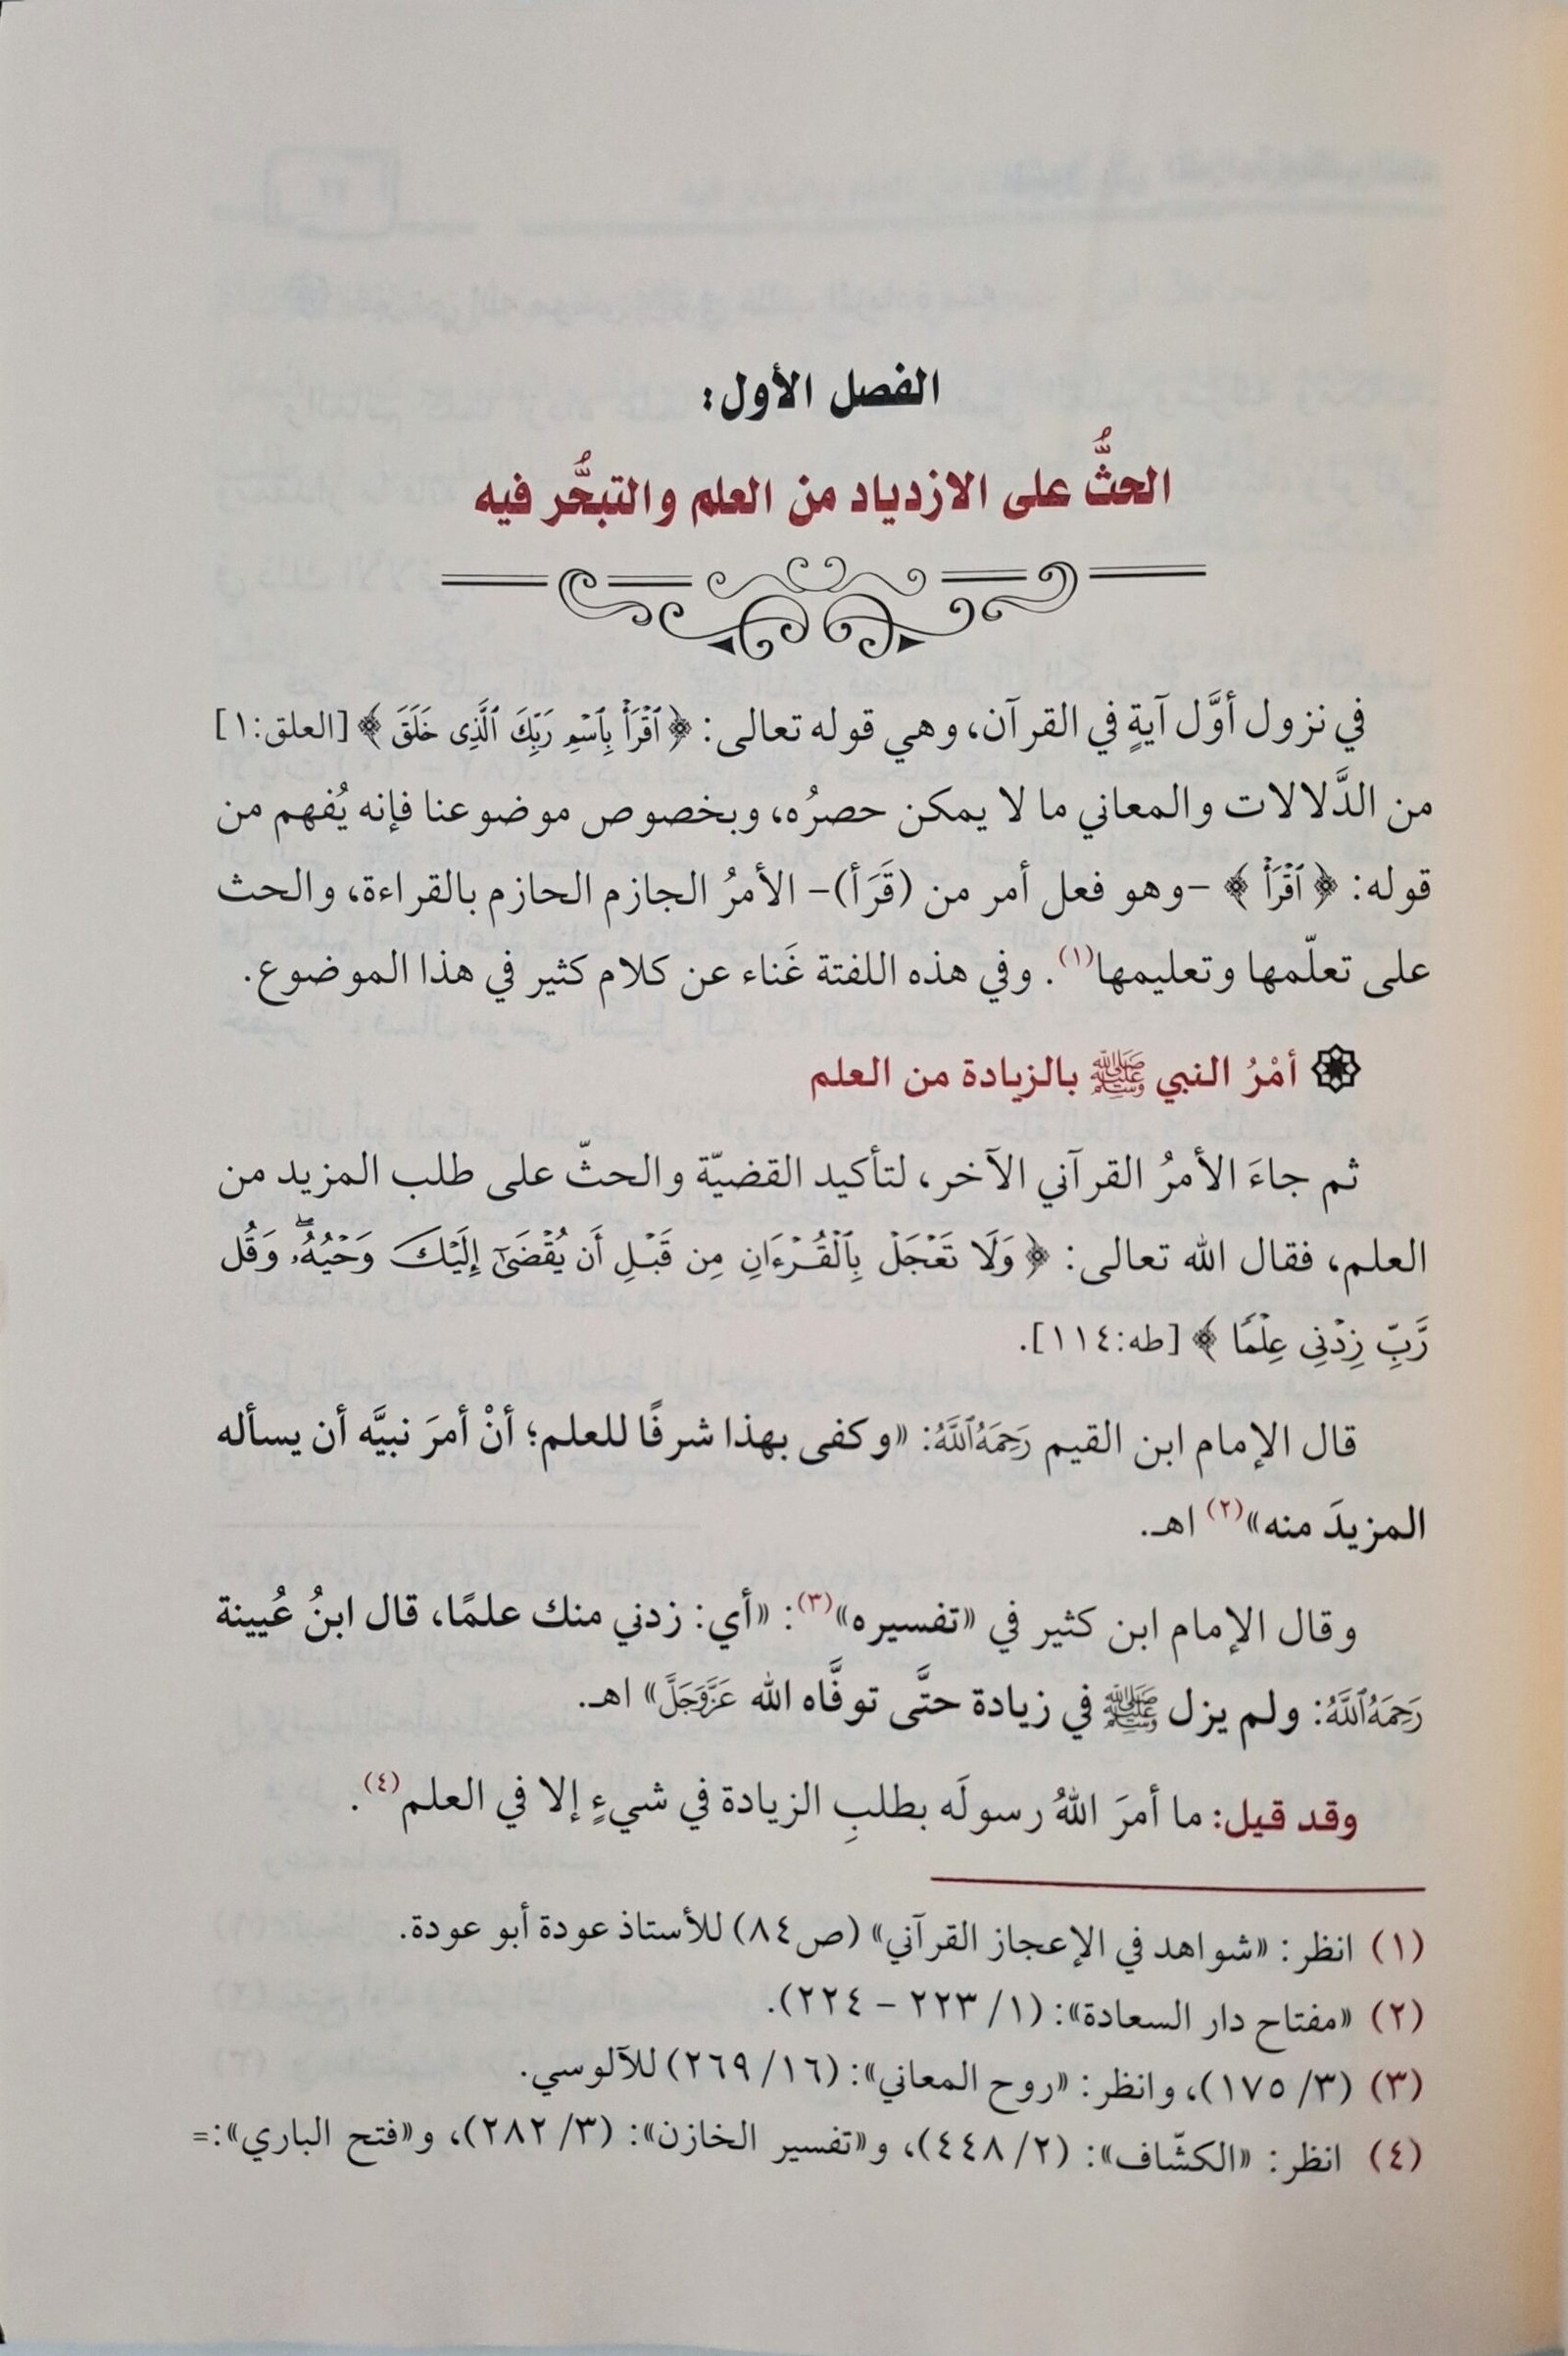 الفصل الأول:
الحثُّ على الازدياد من العلم والتبحُّر فيه
في نزول أوَّل آيةٍ في القرآن، وهي قوله تعالى: ﴿ ٱقْرَأْ بِٱسْمِ رَبِّكَ ٱلَّذِى خَلَقَ ﴾ [العلق:١]
من الدَّلالات والمعاني ما لا يمكن حصرُه، وبخصوص موضوعنا فإنه يُفهم من
قوله: ﴿ ٱقْرَأْ ﴾ -وهو فعل أمر من (قَرَأ)- الأمرُ الجازم الحازم بالقراءة، والحث
على تعلّمها وتعليمها(١). وفي هذه اللفتة غَناء عن كلام كثير في هذا الموضوع.
أمْرُ النبي ﷺ بالزيادة من العلم
ثم جاءَ الأمرُ القرآني الآخر، لتأكيد القضيّة والحثّ على طلب المزيد من
العلم، فقال الله تعالى: ﴿ وَلَا تَعْجَلْ بِٱلْقُرْءَانِ مِن قَبْلِ أَن يُقْضَىٰٓ إِلَيْكَ وَحْيُهُۥ ۖ وَقُل
رَّبِّ زِدْنِى عِلْمًا ﴾ [طه:١١٤].
قال الإمام ابن القيم رَحِمَهُٱللَّهُ: «وكفى بهذا شرفًا للعلم؛ أنْ أمرَ نبيَّه أن يسأله
المزيدَ منه»(٢) اهـ.
وقال الإمام ابن كثير في «تفسيره»(٣): «أي: زدني منك علمًا، قال ابنُ عُيينة
رَحِمَهُٱللَّهُ: ولم يزل ﷺ في زيادة حتَّى توفَّاه الله عَزَّوَجَلَّ» اهـ.
وقد قيل: ما أمرَ اللهُ رسولَه بطلبِ الزيادة في شيءٍ إلا في العلم(٤).
(١) انظر: «شواهد في الإعجاز القرآني» (ص٨٤) للأستاذ عودة أبو عودة.
(٢) «مفتاح دار السعادة»: (١/ ٢٢٣ - ٢٢٤).
(٣) (٣/ ١٧٥)، وانظر: «روح المعاني»: (١٦/ ٢٦٩) للآلوسي.
(٤) انظر: «الكشّاف»: (٢/ ٤٤٨)، و«تفسير الخازن»: (٣/ ٢٨٢)، و«فتح الباري»:=